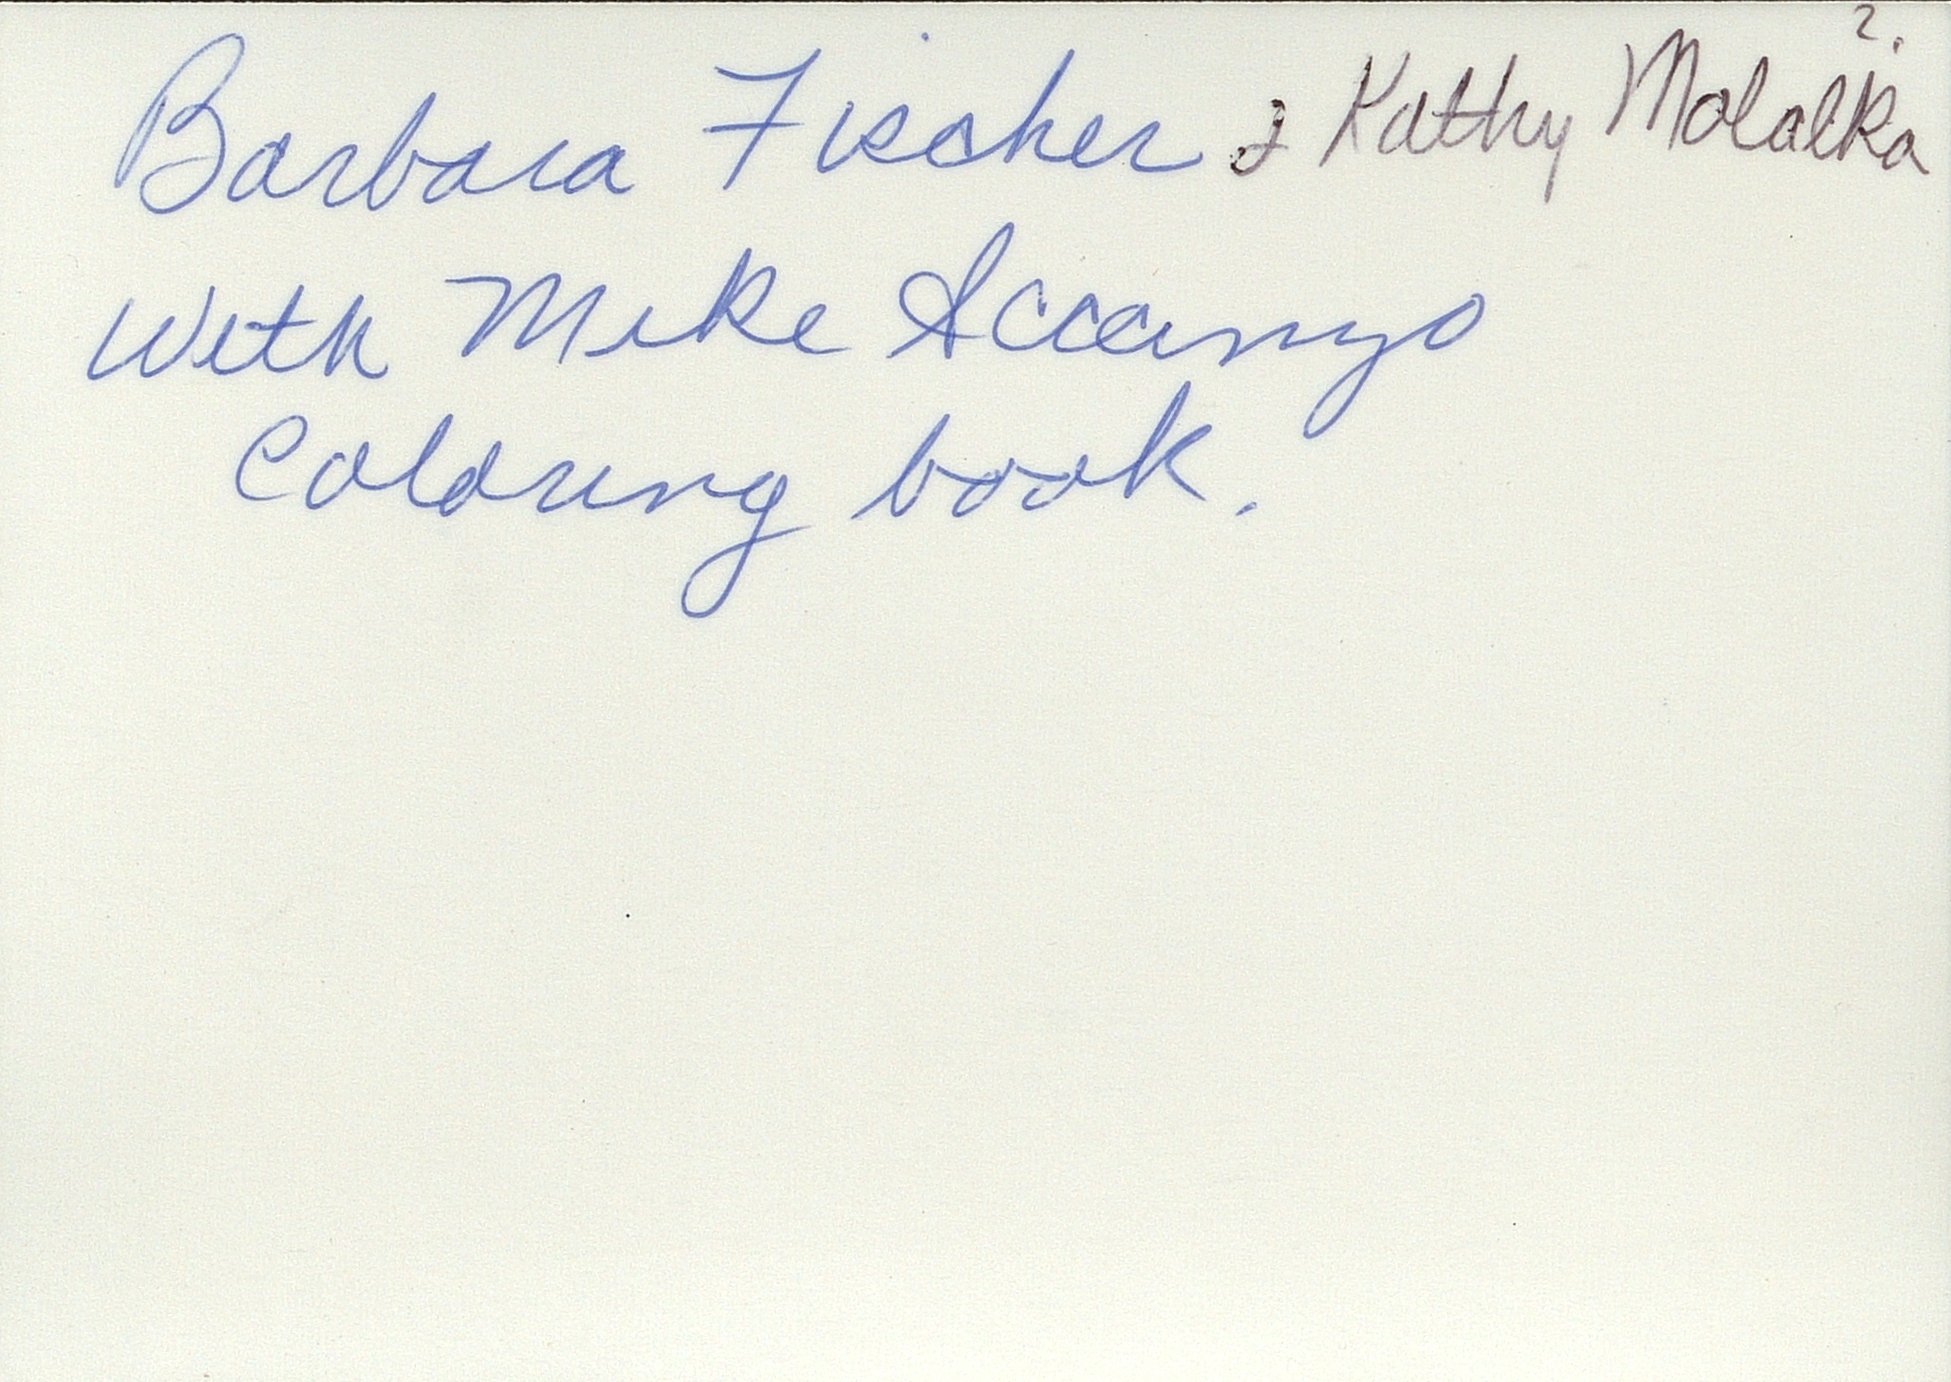 Barbara Fischer & Kathy Molalka ?.
With Mike Scanyo
Coloring book.